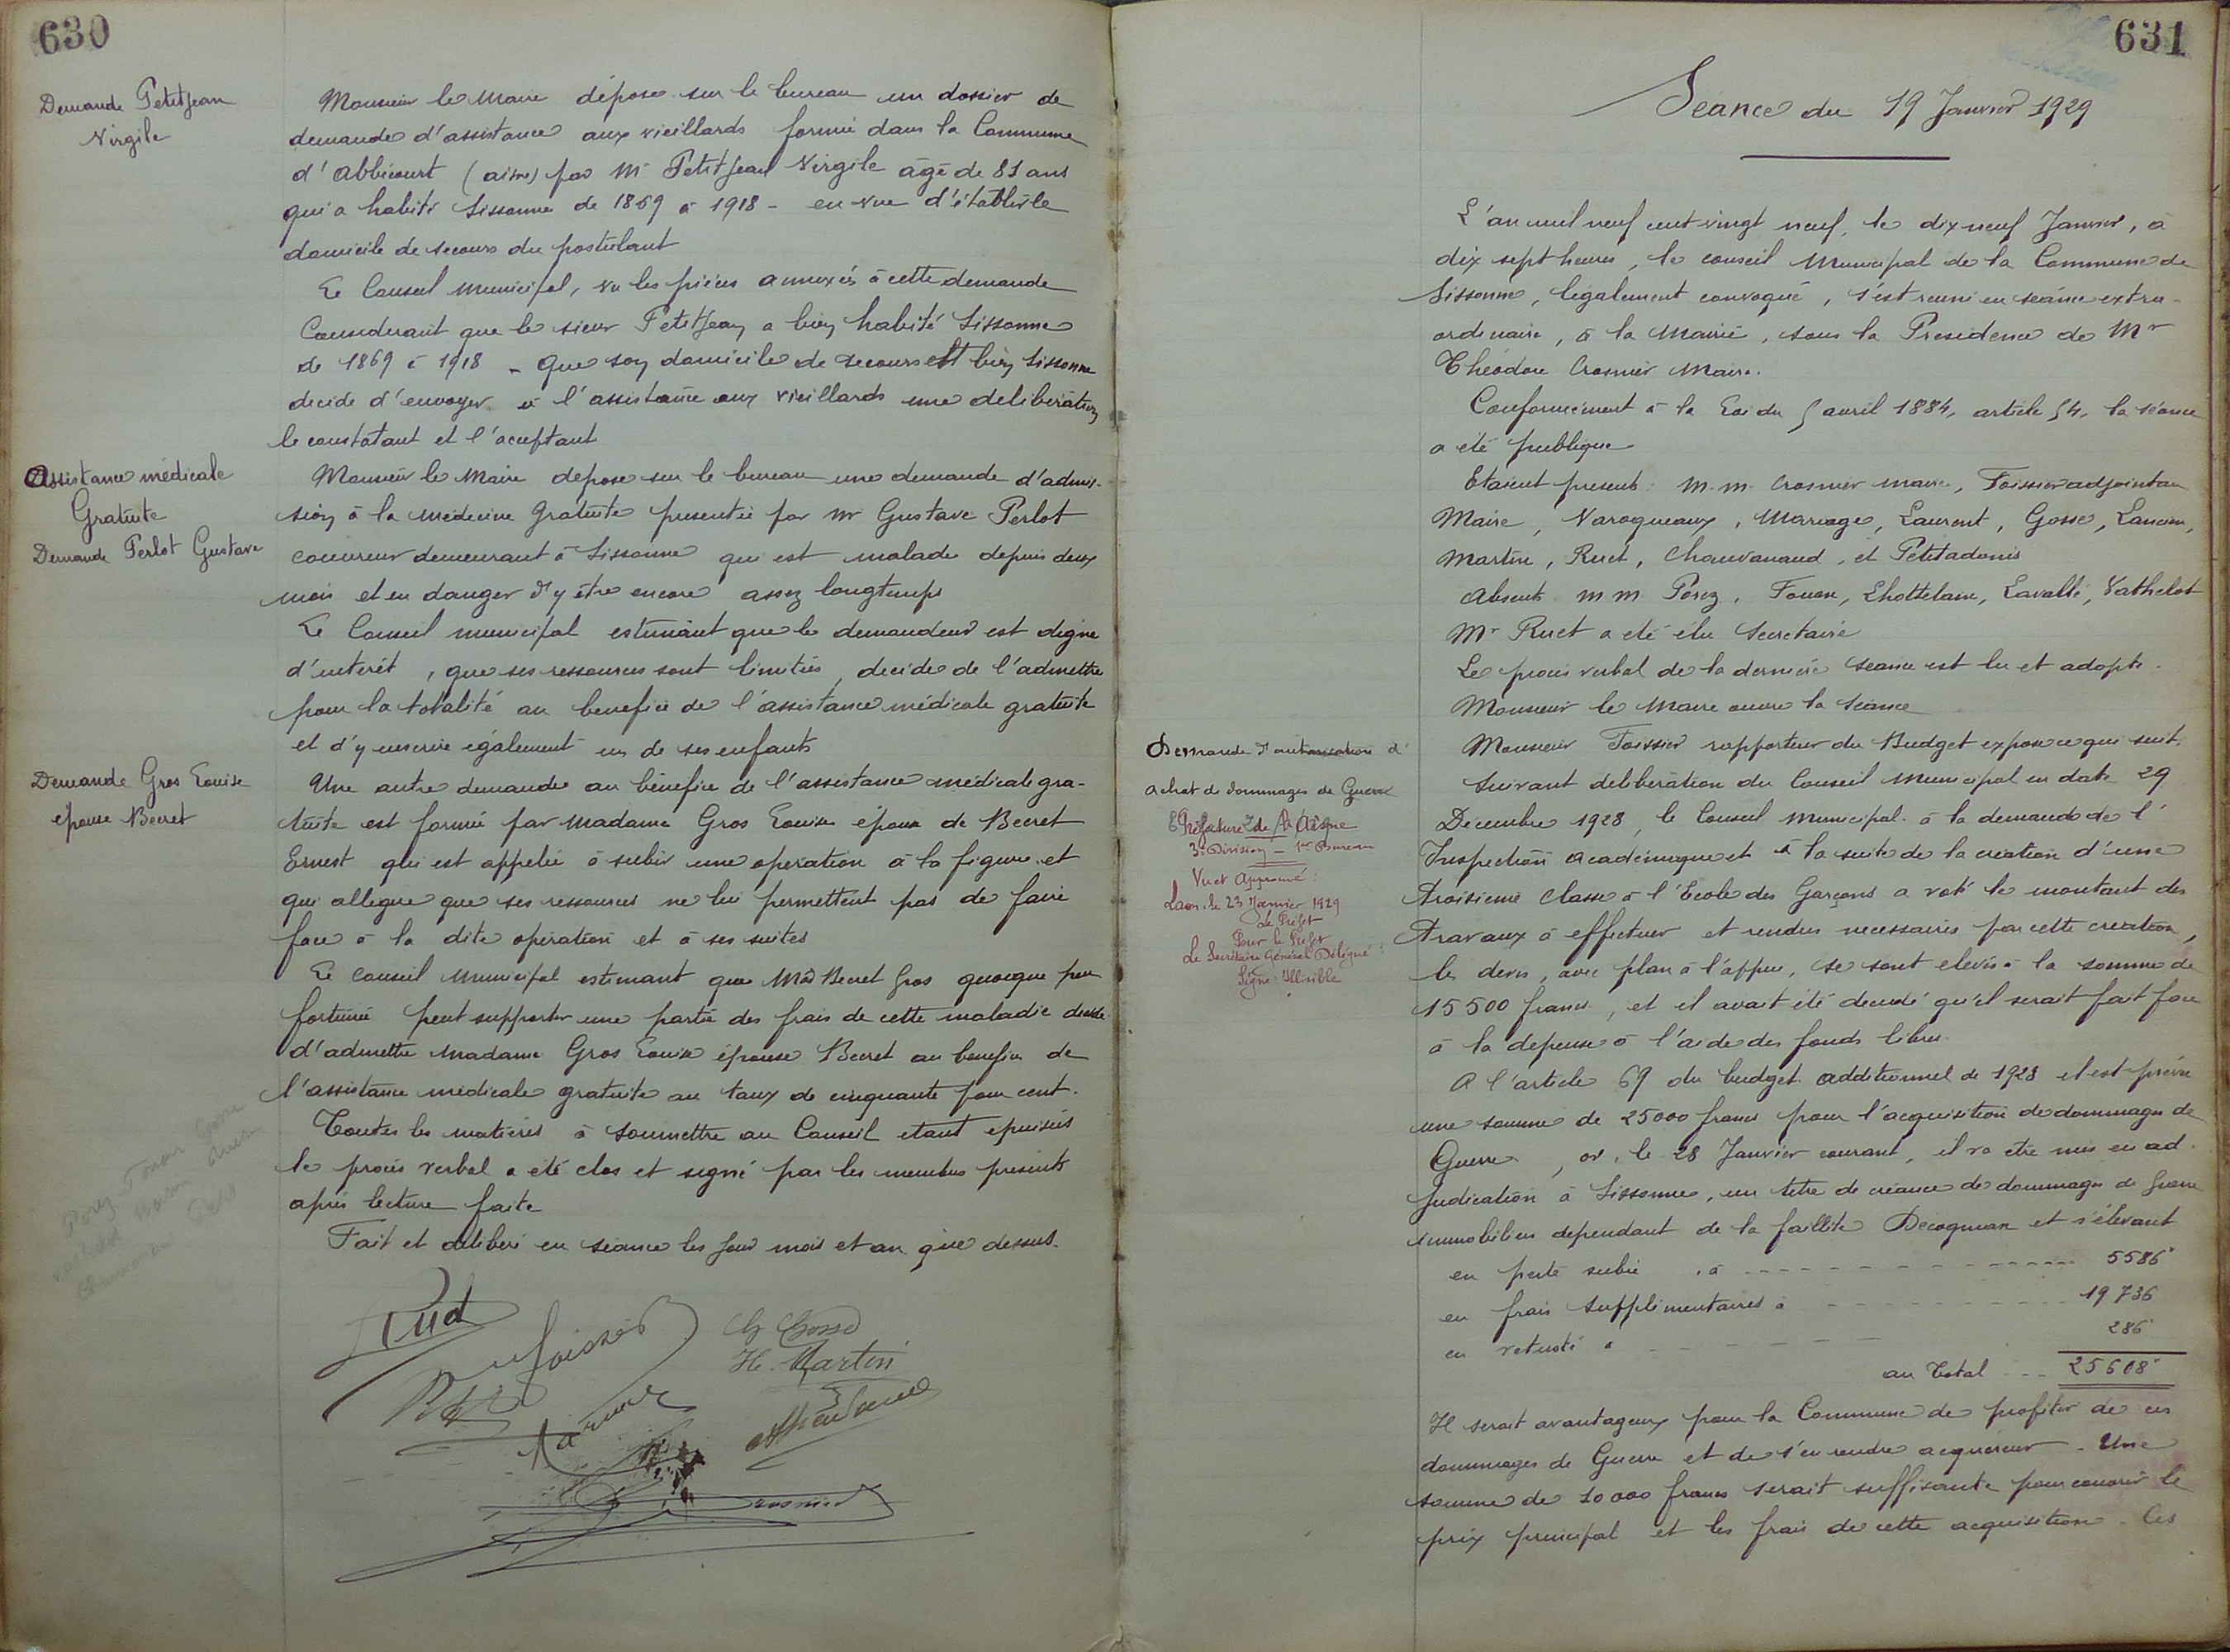 630
Demande Petitjean
Virgile
Monsieur le Maire dépose sur le bureau un dossier de
demande d'assistance aux vieillards formée dans la Commune
d'Abbécourt (aisne) par Mr Petitjean Virgile âgé de 81 ans
qui a habité Sissonne de 1869 à 1918 - en vue d'établir le
domicile de secours du postulant
Le Conseil Municipal, vu les pièces annexées à cette demande
Considerant que le sieur Petitjean a bien habité Sissonne
de 1869 à 1918 - que son domicile de secours est bien Sissonne
decide d'envoyer à l'assistance aux vieillards une deliberation
le constatant et l'acceptant
Assistance médicale
Gratuite
Demande Perlot Gustave
Monsieur le Maire depose sur le bureau une demande d'admis-
sion à la médecine gratuite presentée par Mr Gustave Perlot
couvreur demeurant à Sissonne qui est malade depuis deux
mois et en danger d'y être encore assez longtemps
Le Conseil municipal estimant que le demandeur est digne
d'interêt, que ses ressources sont limitées, decide de l'admettre
pour la totalité au benefice de l'assistance médicale gratuite
et d'y inscrire également un de ses enfants
Demande Gros Louise
épouse Becret
Une autre demande au bénéfice de l'assistance médicale gra-
tuite est formée par Madame Gros Louise épouse de Becret
Ernest qui est appelée à subir une operation à la figure et
qui allegue que ses ressources ne lui permettent pas de faire
face à la dite opération et à ses suites
Le Conseil Municipal estimant que Md Becret Gros quoique peu
fortunée peut supporter une partie des frais de cette maladie decide
d'admettre Madame Gros Louise épouse Becret au benefice de
l'assistance médicale gratuite au taux de cinquante pour cent.
Toutes les matières à soumettre au Conseil etant epuisées
le procès verbal a été clos et signé par les membres presents
après lecture faite
Fait et délibéré en séance les jour mois et an que dessus.
Ruet
Foissier
Ch Gosse
H. Martin
Crosnier
631
Seance du 19 Janvier 1929
L'an mil neuf cent vingt neuf, le dix neuf Janvier, à
dix sept heures, le conseil Municipal de la Commune de
Sissonne, légalement convoqué, s'est reuni en séance extra-
ordinaire, à la Mairie, sous la Presidence de Mr
Théodore Crosnier Maire.
Conformément à la Loi du 5 avril 1884, article 54, la séance
a été publique
Etaient présents: M.M. Crosnier maire, Foissier adjoint au
Maire, Varoqueaux, Mariage, Laurent, Gosse,
Martin, Ruet, Chauvanaud, et Petitadonis
Absents M.M. Perez, Fouan, Lhottelain, Lavallé, Vathelot
Mr Ruet a été élu Secretaire
Le procès verbal de la dernière séance est lu et adopté.
Monsieur le Maire ouvre la Séance
Demande d'autorisation d'
achat de dommages de Guerre
Préfecture de l'Aisne
3e Division - 1er Bureau
Vu et Approuvé:
Laon, le 23 Janvier 1929
Le Préfet
Pour le Préfet
Le Secrétaire Général Délégué:
Signé: Illisible
Monsieur Foissier rapporteur du Budget expose ce qui suit:
Suivant deliberation du Conseil Municipal en date 29
Décembre 1928, le Conseil Municipal à la demande de l'
Inspection académique et à la suite de la création d'une
troisieme classe à l'Ecole des Garçons a voté le montant des
travaux à effectuer et rendus necessaires par cette creation,
les devis, avec plan à l'appui, se sont elevés à la somme de
15500 francs, et il avait été decidé qu'il serait fait face
à la depense à l'aide des fonds libres.
A l'article 69 du budget additionnel de 1928 il est prévu
une somme de 25000 francs pour l'acquisition de dommages de
Guerre, or, le 28 Janvier courant, il va être mis en ad-
judication à Sissonne, un titre de créance de dommages de guerre
immobiliers dependant de la faillite Decogman et s'élevant
en perte subie, à - - - 5586
en frais supplémentaires à - - - 19736
en vetusté à - - - 286
au Total - - - 25608
Il serait avantageux pour la Commune de profiter de ces
dommages de Guerre et de s'en rendre acquereur - Une
somme de 10000 francs serait suffisante pour couvrir le
prix principal et les frais de cette acquisition - Ces